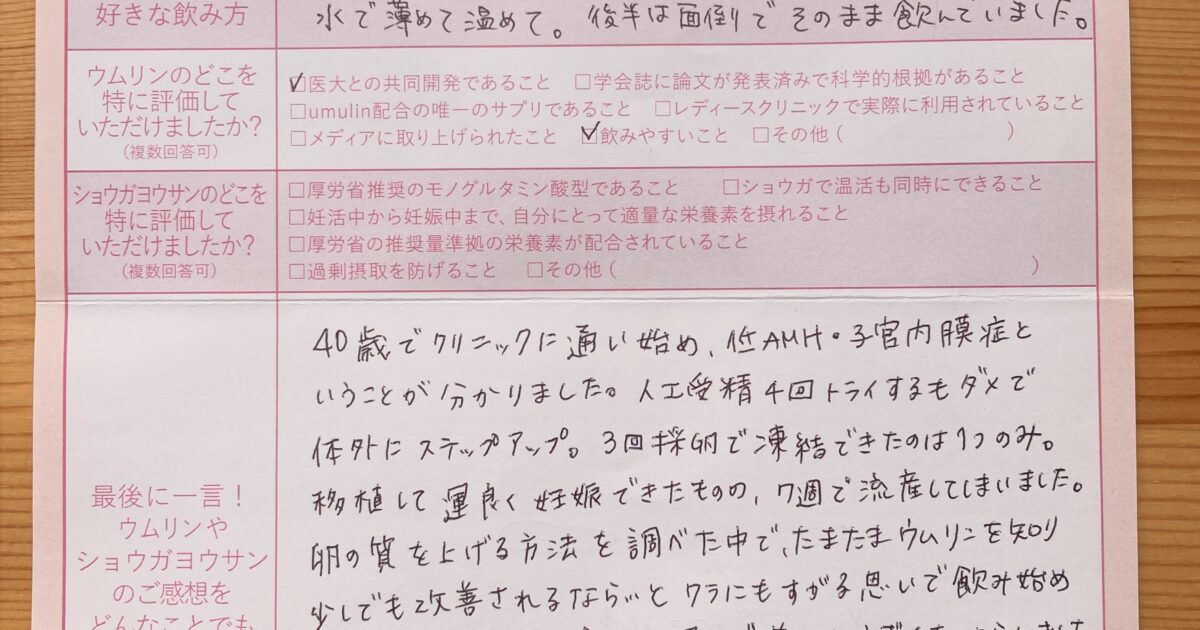 好きな飲み方
水で薄めて温めて。後半は面倒でそのまま飲んでいました。
ウムリンのどこを
特に評価して
いただけましたか?
(複数回答可)
☑医大との共同開発であること □学会誌に論文が発表済みで科学的根拠があること
□umulin配合の唯一のサプリであること □レディースクリニックで実際に利用されていること
□メディアに取り上げられたこと ☑飲みやすいこと □その他 ( )
ショウガヨウサンのどこを
特に評価して
いただけましたか?
(複数回答可)
□厚労省推奨のモノグルタミン酸型であること □ショウガで温活も同時にできること
□妊活中から妊娠中まで、自分にとって適量な栄養素を摂れること
□厚労省の推奨量準拠の栄養素が配合されていること
□過剰摂取を防げること □その他 ( )
最後に一言!
ウムリンや
ショウガヨウサン
のご感想を
どんなことでも
40歳でクリニックに通い始め、低AMH・子宮内膜症と
いうことが分かりました。人工受精4回トライするもダメで
体外にステップアップ。3回採卵で凍結できたのは1つのみ。
移植して運良く妊娠できたものの、7週で流産してしまいました。
卵の質を上げる方法を調べた中で、たまたまウムリンを知り
少しでも改善されるなら…とワラにもすがる思いで飲み始め